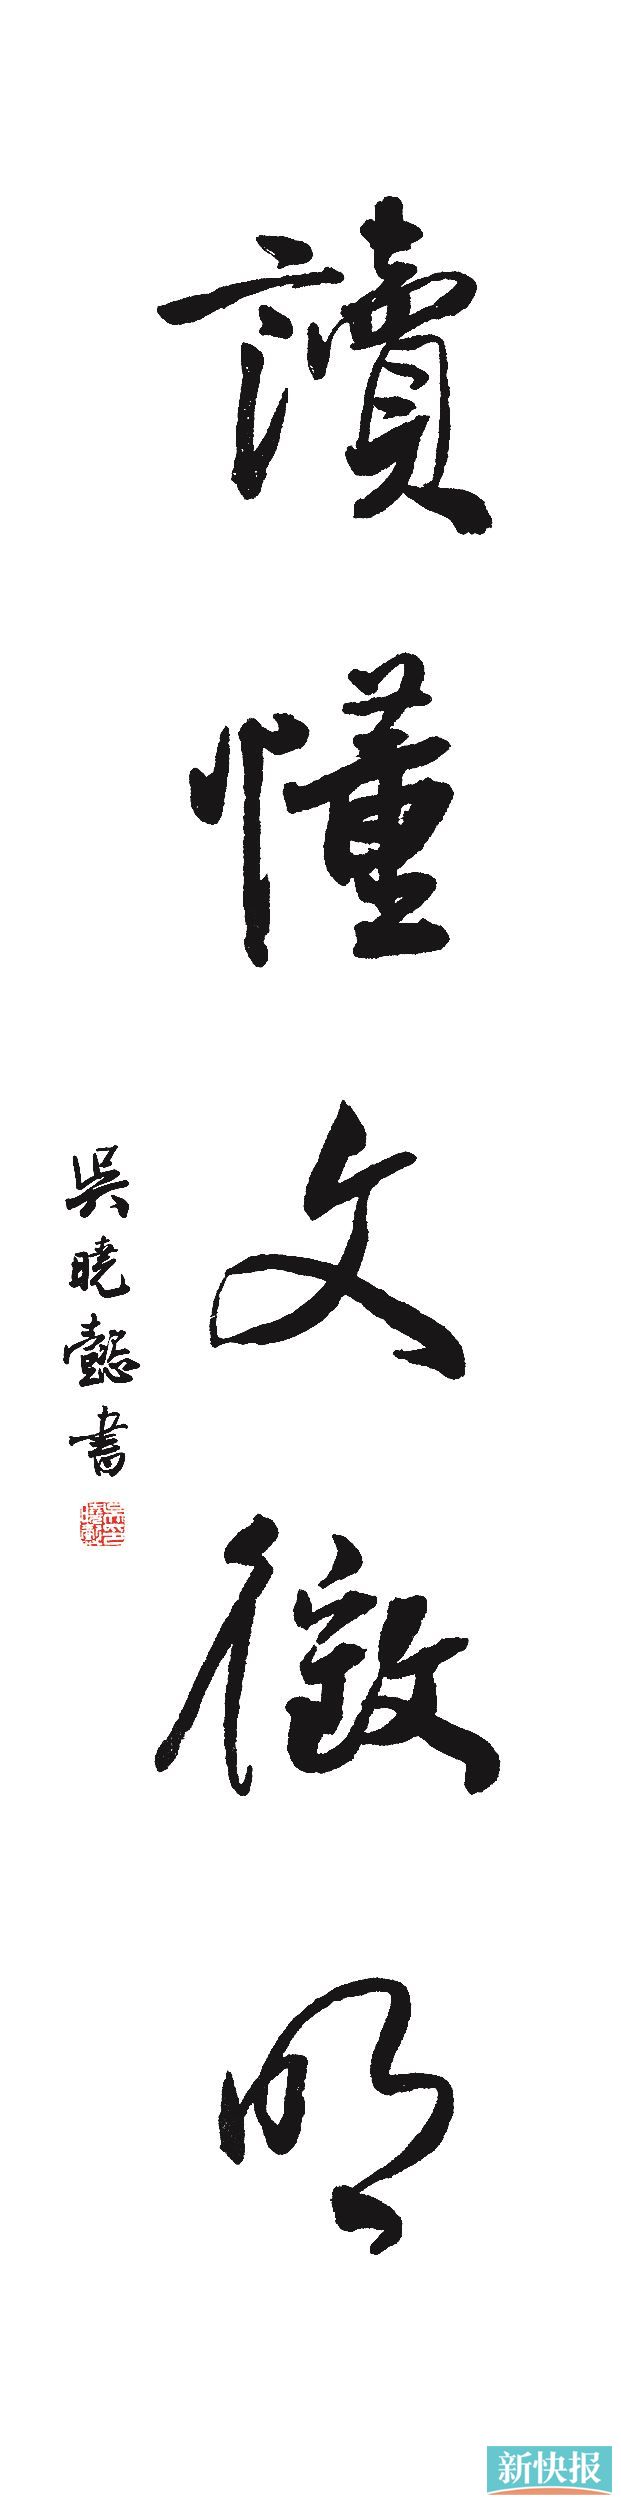 讀懂文徵明
吳曉懿書
新快报